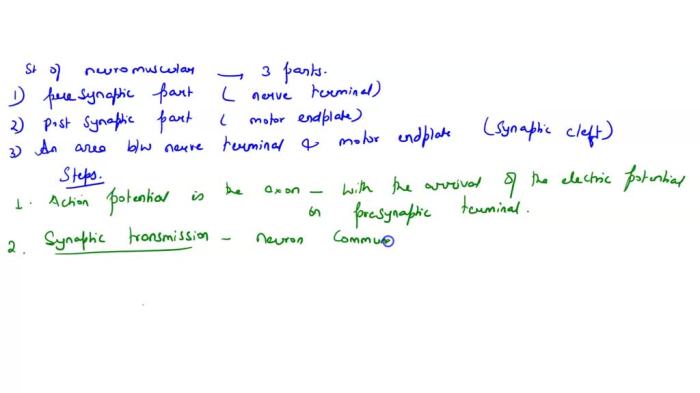 St of neuromuscular → 3 parts.
1) presynaptic part ( nerve terminal)
2) Post synaptic part ( motor endplate)
3) An area b/w nerve terminal & motor endplate (synaptic cleft)
Steps.
1. Action potential is the axon – with the arrival of the electric potential
on presynaptic terminal.
2. Synaptic transmission – neuron commun